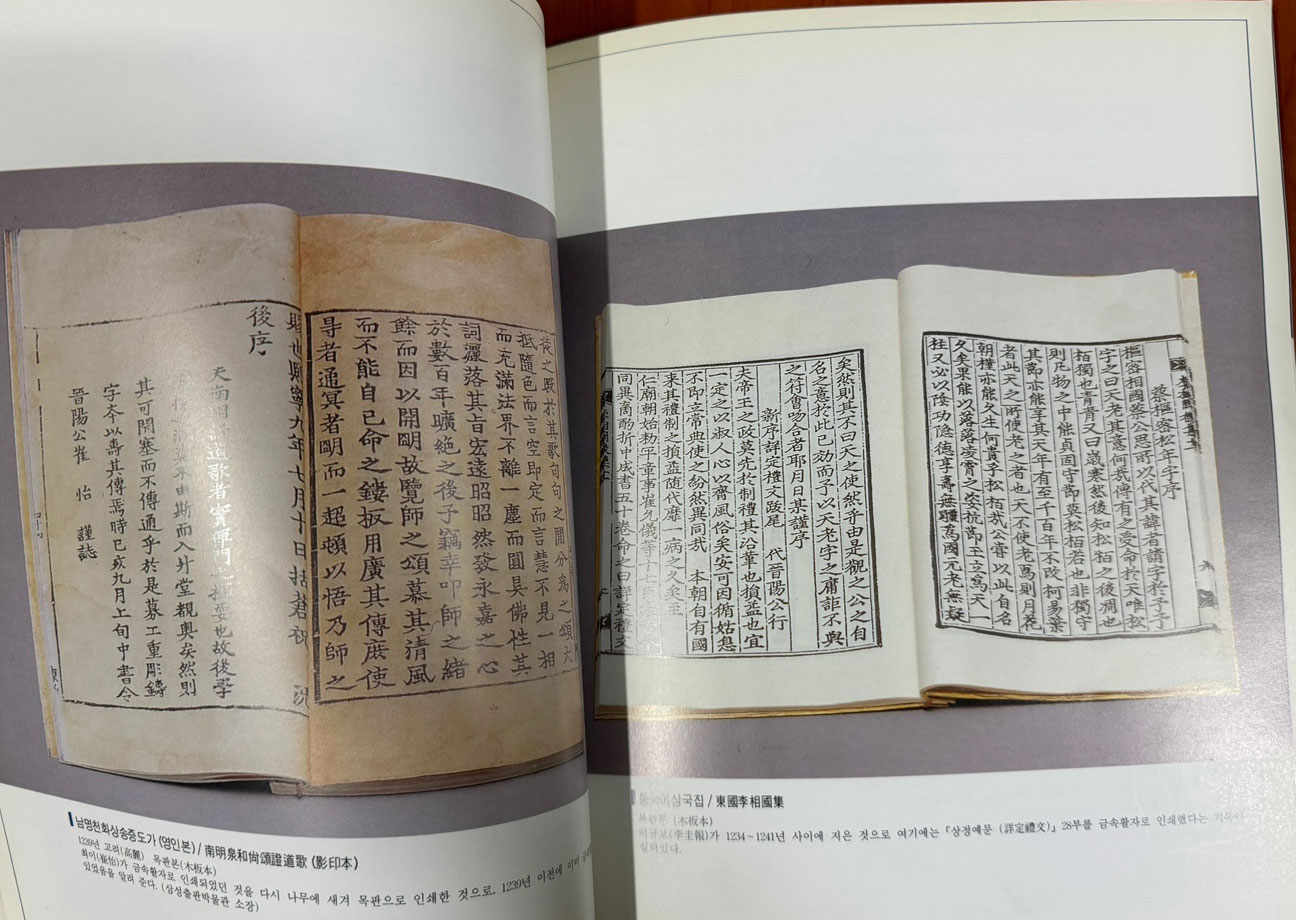 之 於其歌句句之間分爲之頌大
抵隨色而言空即定而言慧不見一相
而充滿法界不離一塵而圓具佛性其
詞灑落其旨宏遠昭昭然發永嘉之心
於數百年曠絶之後予竊幸叩師之緒
餘而因以開明故覽師之頌慕其清風
而不能自已命之鏤板用廣其傳庶使
㝵者通冥者明而一超頓以悟乃師之
賜也熙寧九年七月十日括蒼祝 況
後序
夫南明 道歌者實禪門之樞要也故後學
莫不由斯而入升堂覩奥矣然則
其可閉塞而不傳通乎於是募工重彫鑄
字本以壽其傳焉時已亥九月上旬中書令
晉陽公崔 怡 謹誌
남명천화상송증도가 (영인본) / 南明泉和尙頌證道歌 (影印本)
1239년 고려(高麗) 목판본(木板本)
최이(崔怡)가 금속활자로 인쇄되었던 것을 다시 나무에 새겨 목판으로 인쇄한 것으로, 1239년 이전에 이미
있었음을 알려 준다. (삼성출판박물관 소장)
蔡樞密松年字序
樞密相國蔡公思所以代其諱者請字於予予
字之曰天老其意何哉傳有之受命於天唯松
栢獨也青青又曰歲寒然後知松栢之後凋也
則凡物之中能貞固守節莫松栢若也非獨守
其節亦能享其天年有至千百年不改柯易葉
者此天之所使老之者也天不使老焉則月蓂
朝槿亦能久生何貴乎松栢哉公嘗以此自名
久矣果能以落落凌霄之姿抗節王立爲天一
柱又必以陰功隐德享壽無疆爲國元老無疑
矣然則其不曰天之使然乎由是觀之公之自
名之意於此已効而予以天老字之庸詎不與
之符會吻合者耶月日某謹序
新序詳定禮文跋尾 代晉陽公行
夫帝王之政莫先於制禮其沿革也損益也宜
一定之以淑人心以齊風俗矣安可因循姑息
不即立常典使之紛然異同哉 本朝自有國
來其禮制之損益隨代靡一病之久矣至
仁廟朝始勑平章事崔允儀等十七臣
同異商酌折中成書五十卷命之曰詳定禮文
동국이상국집 / 東國李相國集
목판본 (木板本)
이규보(李奎報)가 1234~1241년 사이에 지은 것으로 여기에는 『상정예문 (詳定禮文)』 28부를 금속활자로 인쇄했다는 기록이
실려있다.